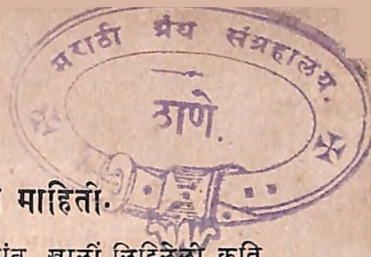 मराठी ग्रंथ संग्रहालय.
ठाणे.
माहिती.
खालीं लिहिलेली कृति